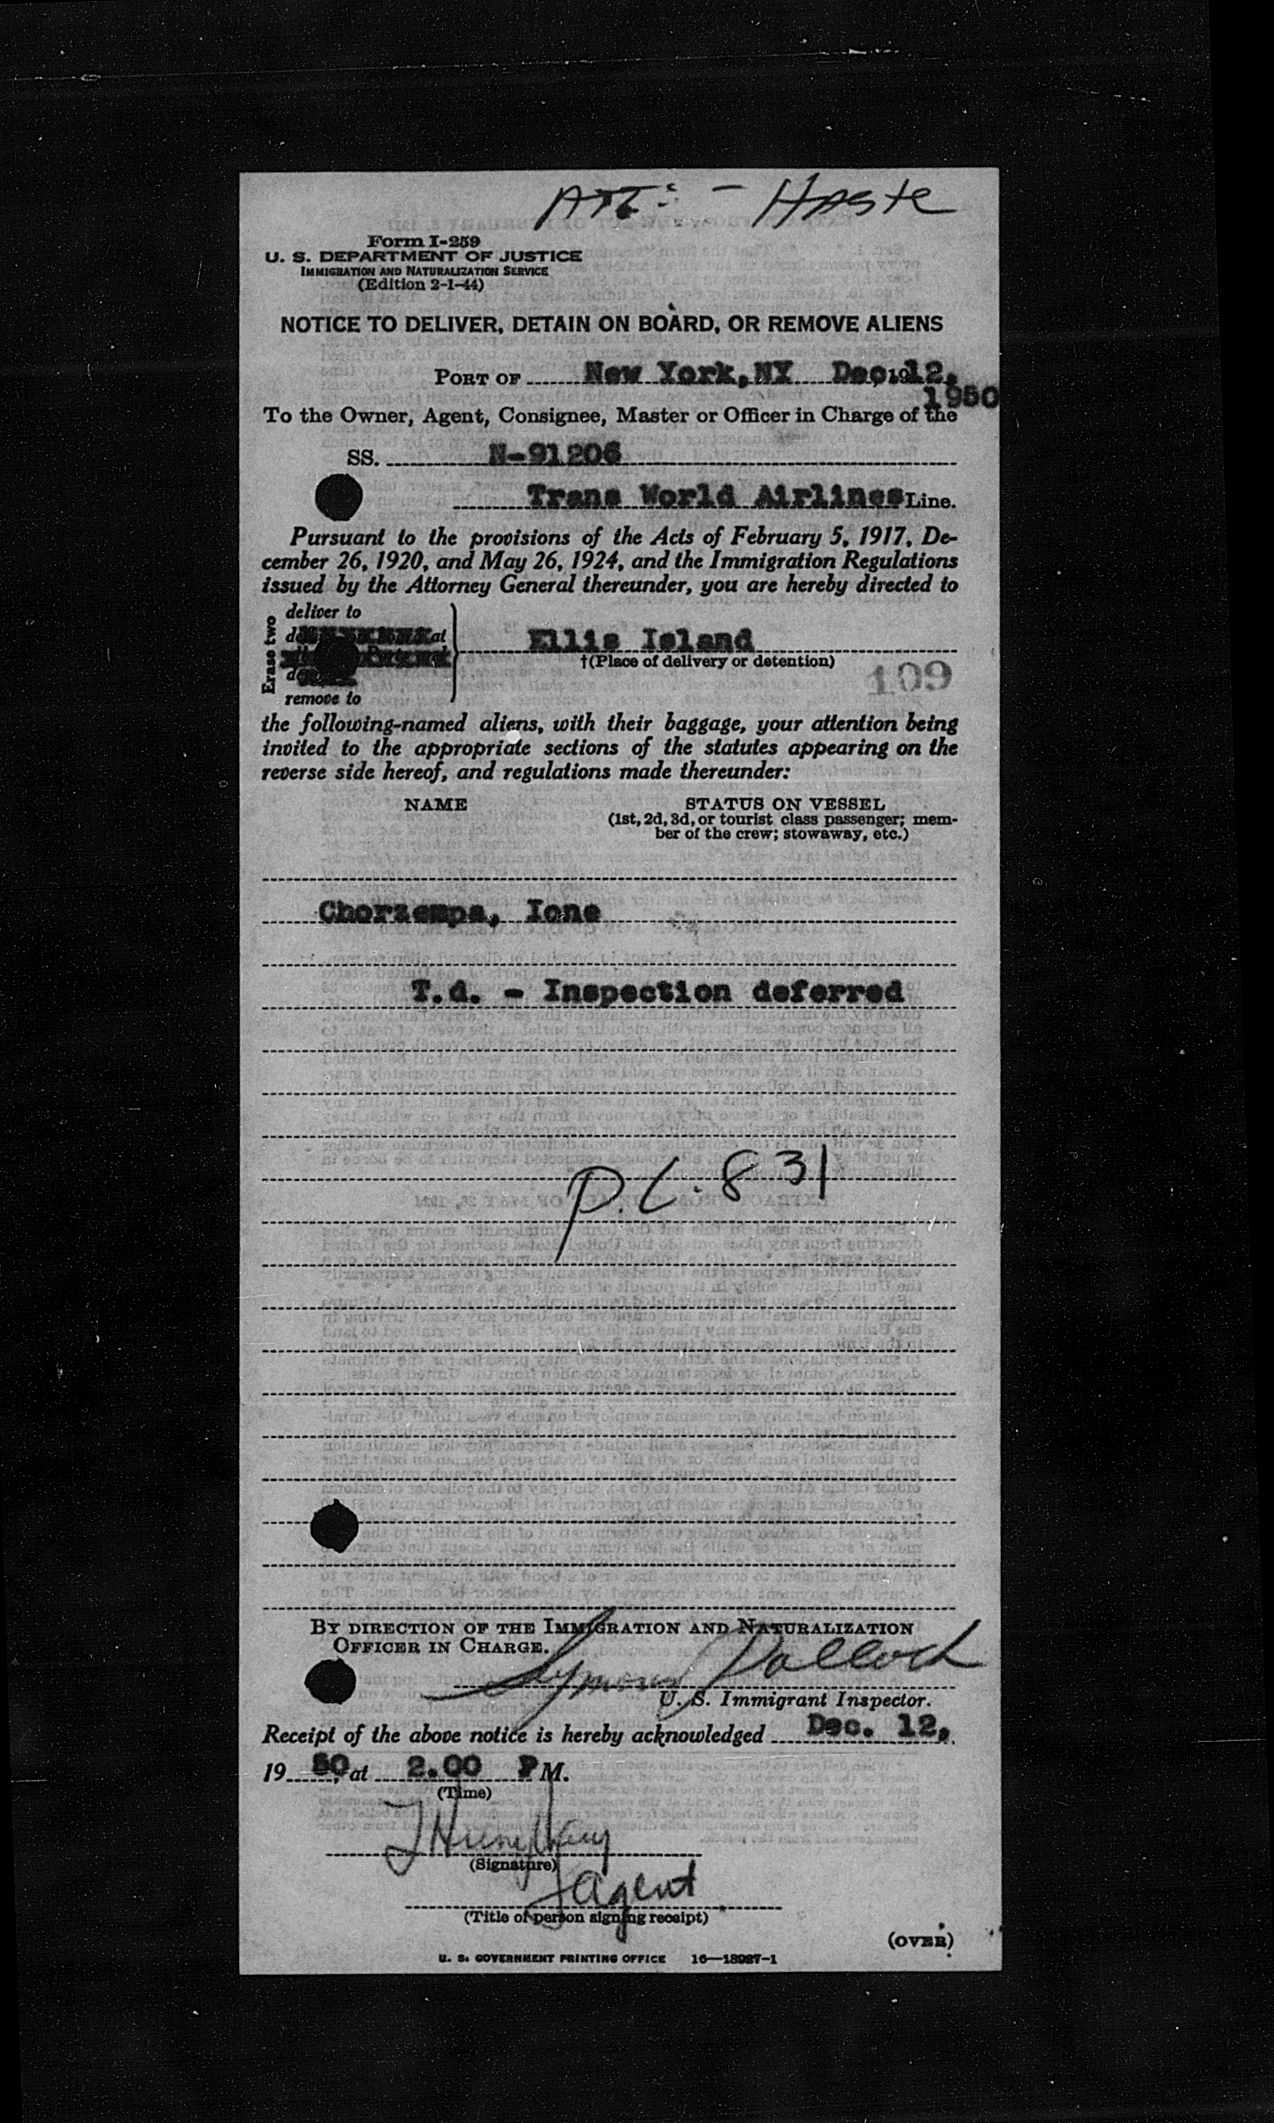 Att: - Haste
Form I-259
U. S. DEPARTMENT OF JUSTICE
IMMIGRATION AND NATURALIZATION SERVICE
(Edition 2-1-44)
NOTICE TO DELIVER, DETAIN ON BOARD, OR REMOVE ALIENS
PORT OF New York, NY Dec 12, 19
1950
To the Owner, Agent, Consignee, Master or Officer in Charge of the
SS. N-91206
Trans World Airlines Line.
Pursuant to the provisions of the Acts of February 5, 1917, De-
cember 26, 1920, and May 26, 1924, and the Immigration Regulations
issued by the Attorney General thereunder, you are hereby directed to
Erase two
deliver to
at
Ellis Island
†(Place of delivery or detention)
109
remove to
the following-named aliens, with their baggage, your attention being
invited to the appropriate sections of the statutes appearing on the
reverse side hereof, and regulations made thereunder:
NAME STATUS ON VESSEL
(1st, 2d, 3d, or tourist class passenger; mem-
ber of the crew; stowaway, etc.)
Chorzempa, Ione
T.d. - Inspection deferred
P.C. 831
BY DIRECTION OF THE IMMIGRATION AND NATURALIZATION
OFFICER IN CHARGE.
Pollock
U. S. Immigrant Inspector.
Receipt of the above notice is hereby acknowledged Dec. 12,
19 50, at 2.00 P M.
(Time)
(Signature)
Agent
(Title of person signing receipt)
(OVER)
U. S. GOVERNMENT PRINTING OFFICE 16—18927-1